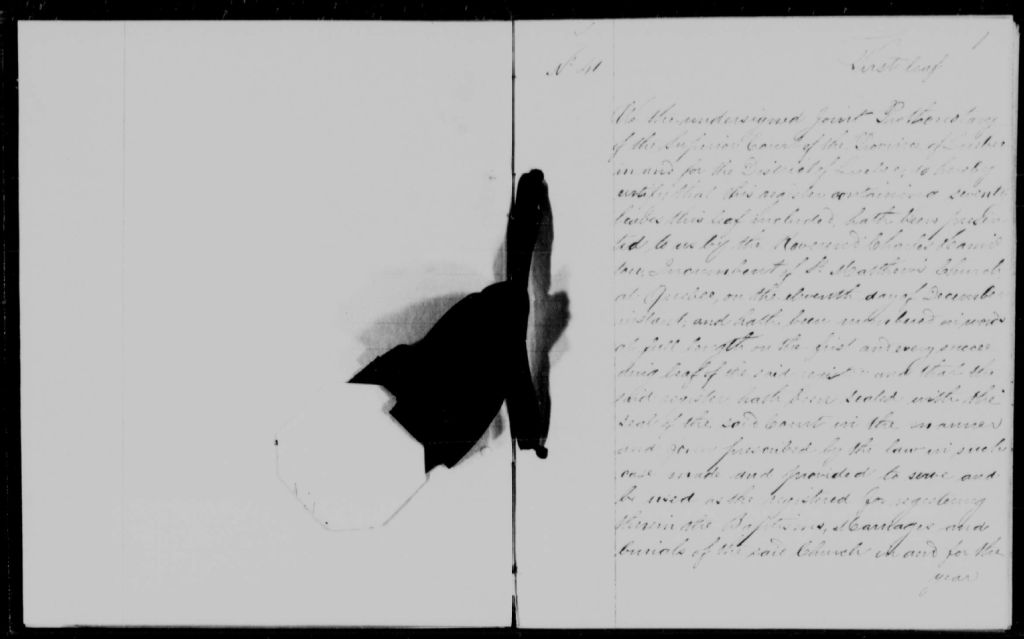 1
First leaf
No 41
We the undersigned joint Prothonotary
of the Superior Court of the Province of Quebec
in and for the District of Quebec, do hereby
certify that this register containing seventy
leaves this leaf included, hath been presen-
ted to us by the Reverend Charles Hamil-
ton, Incumbent of St Matthew's Church
at Quebec, on the eleventh day of December
instant, and hath been numbered in words
at full length on the first and every succee-
ding leaf of the said register and that the
said register hath been sealed with the
seal of the said Court in the manner
and form prescribed by the law in such
case made and provided to serve and
be used as the registered for registering
therein the Baptisms, Marriages and
burials of the said Church in and for the
year